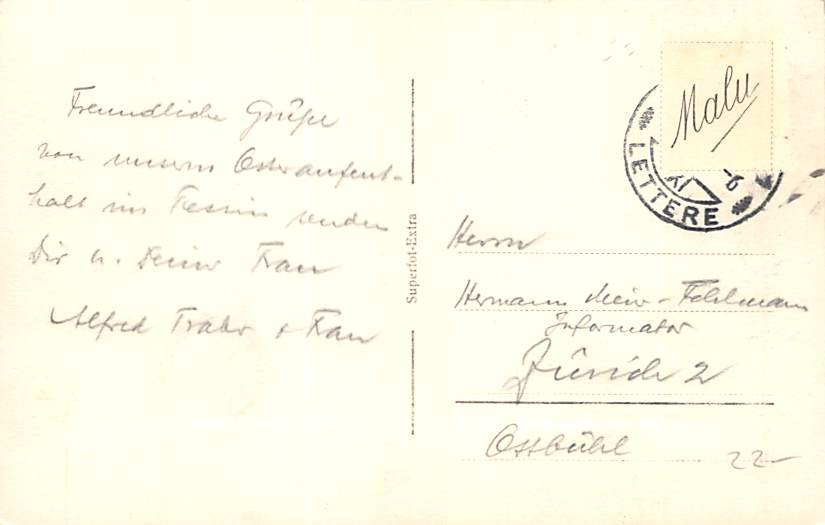 Freundliche Grüße
von unserm Osteraufent-
halt im Tessin senden
Dir u. Deiner Frau
Alfred + Frau
Superfot-Extra
Malu
LETTERE
Herrn
Hermann Meier - Fehlmann
Informator
Zürich 2
Ostbühl
22-